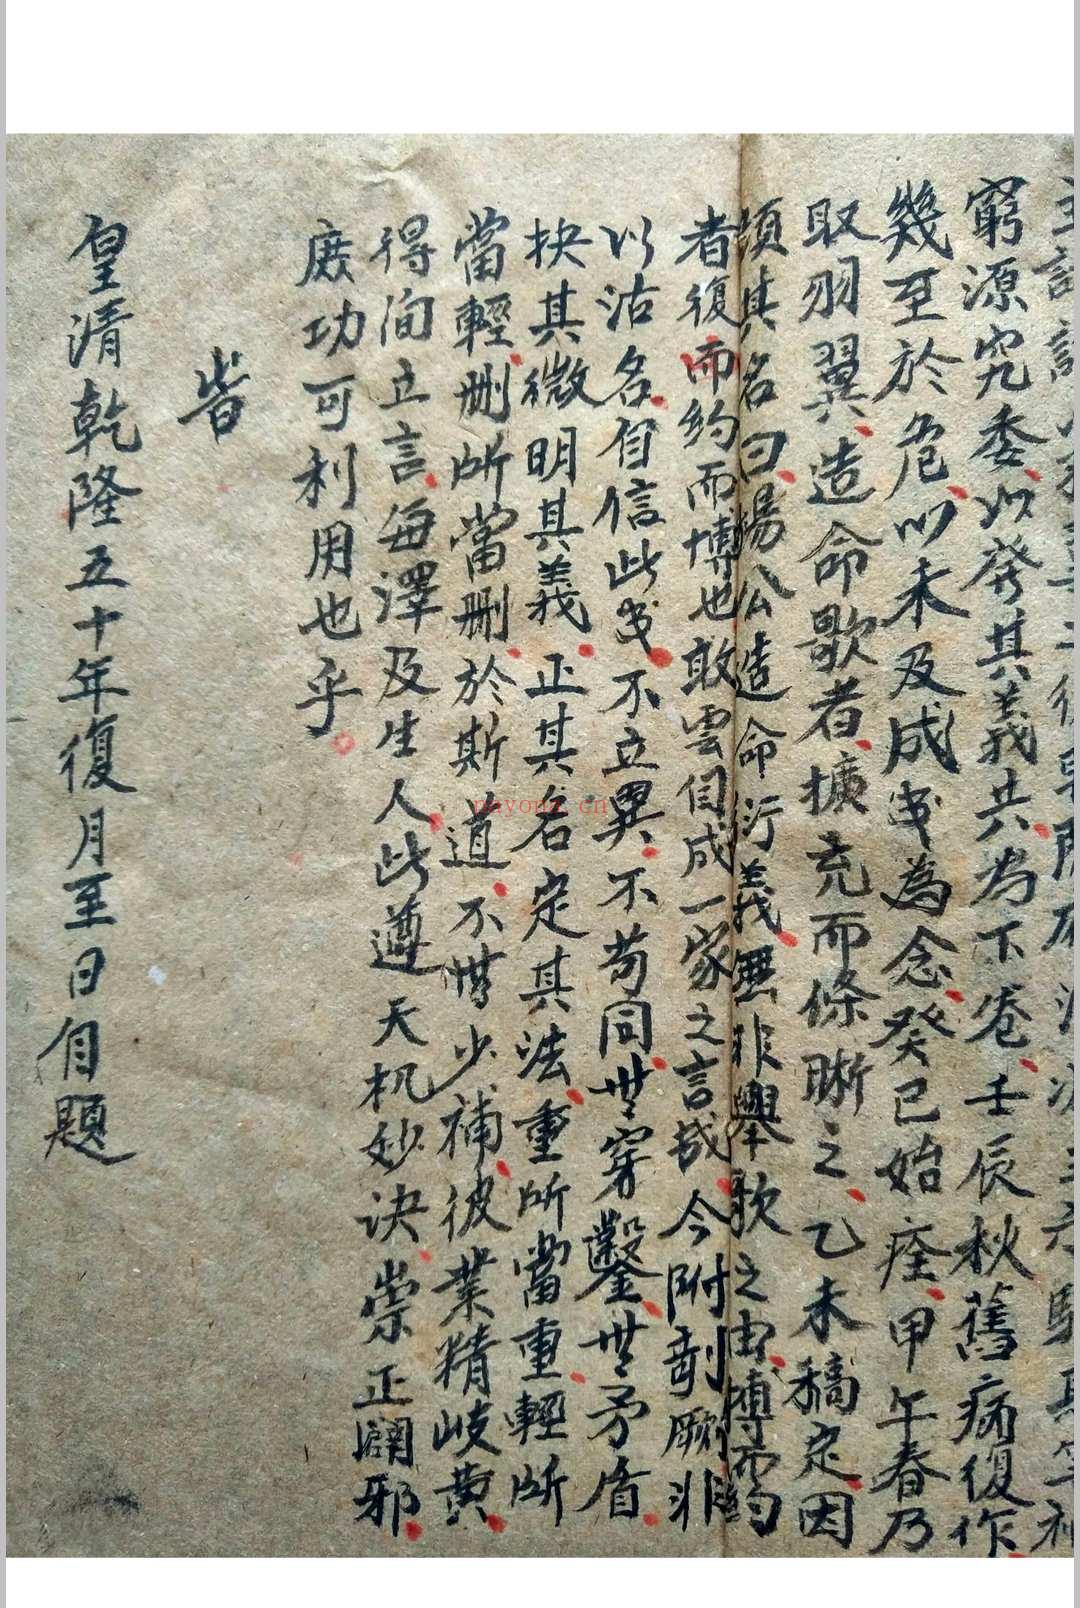 窮源究委以發其義共為下卷壬辰秋舊病復作
幾至於危以未及成書為念癸巳始痊甲午春乃
取羽翼造命歌者擴充而條晰之乙未稿定因
頌其名曰楊公造命衍義無非舉歌之由博而約
者復而約而博也敢雲自成一家之言哉今附剞厥非
以沽名自信此書不立異不苟同無穿鑿無矛盾
抉其微明其義正其名定其法重所當重輕所
當輕刪所當刪於斯道不無少補彼業精岐黃
得向立言每澤及生人此遵天机妙決崇正闢邪
厥功可利用也乎
皆
皇清乾隆五十年復月至日自題
nayona.cn